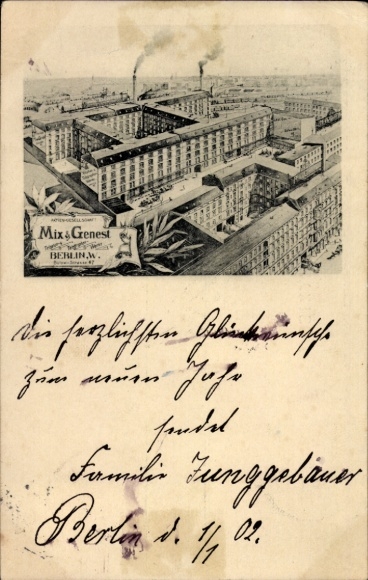 AKTIEN-GESELLSCHAFT
Mix & Genest
BERLIN, W.
Bülow-Strasse 67
Die herzlichsten Glückwünsche
zum neuen Jahr
sendet
Familie Junggebauer
Berlin d. 1/1 02.